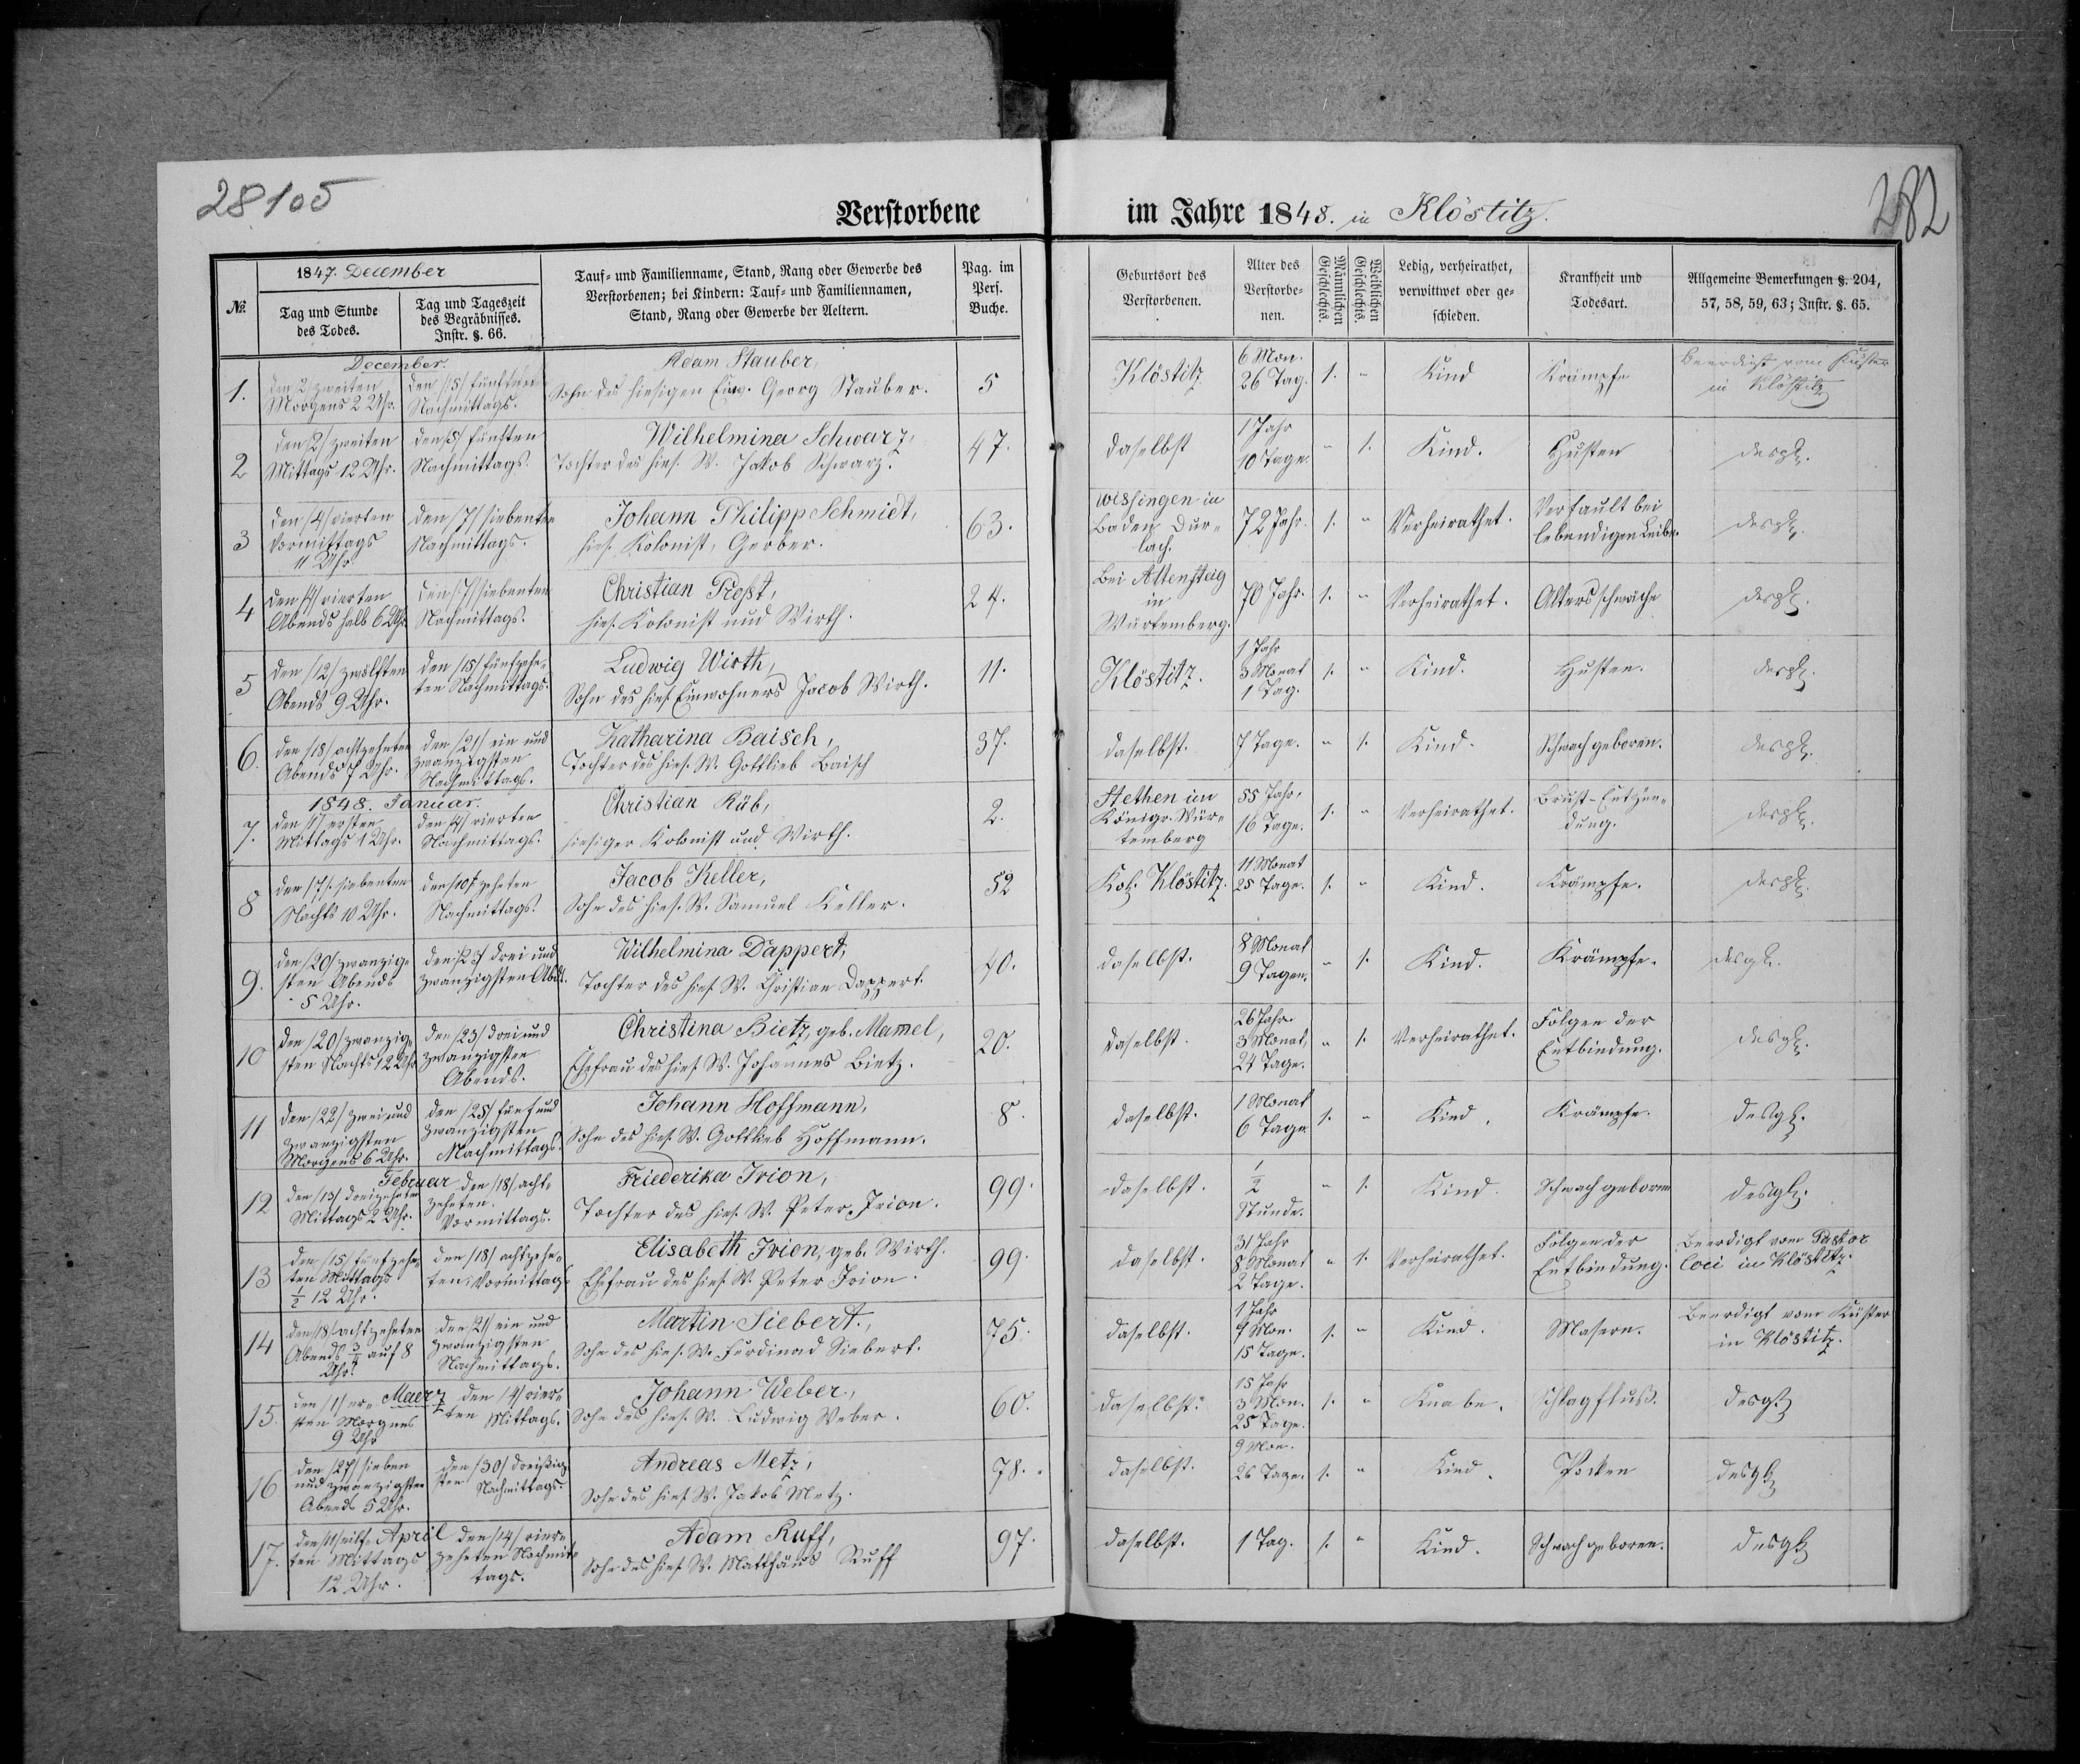 28105
282
Verstorbene im Jahre 1848. in Klöstitz.
№.
1847. December
Tag und Stunde
des Todes.
Tag und Tageszeit
des Begräbnisses.
Instr. §. 66.
Tauf- und Familienname, Stand, Rang oder Gewerbe des
Verstorbenen; bei Kindern: Tauf- und Familiennamen,
Stand, Rang oder Gewerbe der Aeltern.
Pag. im
Pers.
Buche.
Geburtsort des
Verstorbenen.
Alter des
Verstorbe-
nen.
Männlichen
Geschlechts.
Weiblichen
Geschlechts.
Ledig, verheirathet,
verwittwet oder ge-
schieden.
Krankheit und
Todesart.
Allgemeine Bemerkungen §. 204,
57, 58, 59, 63; Instr. §. 65.
December.
1.
den 2/ zweiten
Morgens 2 Uhr.
den /5/ fünften
Nachmittags.
Adam Stauber,
Sohn des hiesigen Einw. Georg Stauber.
5
Klöstitz
6 Mon.
26 Tag.
1.
"
Kind
Krämpfe
Beerdigt vom Küster
in Klöstitz
2
den /2/ zweiten
Mittags 12 Uhr.
den /5/ fünften
Nachmittags.
Wilhelmina Schwarz,
Tochter des hies. W. Jakob Schwarz.
47.
daselbst
1 Jahr
10 Tage.
"
1.
Kind.
Husten
desgl.
3
den /4/ vierten
Vormittags
11 Uhr
den /7/ siebenten
Nachmittags.
Johann Philipp Schmidt,
hies. Kolonist, Gerber.
63.
Wissingen in
Baden Dur-
lach.
72 Jahr.
1.
"
Verheirathet.
Verfault bei
lebendigen Leibe.
desgl.
4
den /4/ vierten
Abends halb 6 Uhr
den /7/ siebenten
Nachmittags.
Christian Prost,
hies. Kolonist und Wirth.
24.
Bei Altensteig
in
Würtemberg.
70 Jahr.
1.
"
Verheirathet.
Altersschwäche
desgl.
5
den /12/ zwölften
Abends 9 Uhr.
den /15/ fünfzehn-
ten Nachmittags.
Ludwig Wirth,
Sohn des hies. Einwohners Jacob Wirth.
11.
Klöstitz.
1 Jahr
3 Monat
1 Tag.
1.
"
Kind.
Husten.
desgl.
6.
den /18/ achtzehnten
Abends 7 Uhr.
den /21/ ein und
zwanzigsten
Nachmittags.
Katharina Baisch,
Tochter des hies. W. Gottlieb Baisch
37.
daselbst.
7 Tage.
"
1.
Kind.
Schwach geboren.
desgl.
1848. Januar.
7.
den /1/ ersten
Mittags 1 Uhr.
den /4/ vierten
Nachmittags.
Christian Rüb,
hiesiger Kolonist und Wirth.
2.
Stethen im
Königr. Wür-
temberg
55 Jahr,
16 Tage.
1.
"
Verheirathet.
Brust-Entzün-
dung.
desgl.
8
den /7/ siebenten
Nachts 10 Uhr.
den /10/ zehnten
Nachmittags.
Jacob Keller,
Sohn des hies. W. Samuel Keller.
52
Kol. Klöstitz.
11 Monat
25 Tage.
1.
"
Kind.
Krämpfe.
desgl.
9.
den /20/ zwanzig-
sten Abends
5 Uhr.
den /23/ drei und
zwanzigsten Abds.
Wilhelmina Dappert,
Tochter des hies. W. Christian Dappert.
40.
daselbst.
8 Monat
9 Tagen.
"
1.
Kind.
Krämpfe.
desgl.
10
den /20/ zwanzig-
sten Nachts 12 Uhr
den /23/ drei und
zwanzigsten
Abends.
Christina Bietz, geb. Mamel,
Ehefrau des hies. W. Johannes Bietz.
20.
daselbst.
26 Jahr.
3 Monat,
24 Tage.
"
1.
Verheirathet.
Folgen der
Entbindung.
desgl.
11
den /22/ zwei und
zwanzigsten
Morgens 6 Uhr.
den /25/ fünf und
zwanzigsten
Nachmittags.
Johann Hoffmann,
Sohn des hies. W. Gottlieb Hoffmann.
8.
daselbst.
1 Monat
6 Tage
1.
"
Kind.
Krämpfe.
desgl.
Februar
12
den /13/ dreizehnten
Mittags 2 Uhr.
den /18/ acht-
zehnten
Vormittags.
Friederika Irion,
Tochter des hies. W. Peter Irion.
99.
daselbst.
1/2
Stunde.
"
1.
Kind.
Schwach geboren
desgl.
13
den /15/ fünfzehn-
ten Mittags
1/2 12 Uhr.
den /18/ achtzehn-
ten Vormittags
Elisabeth Irion, geb. Wirth.
Ehefrau des hies. W. Peter Irion.
99.
daselbst.
31 Jahr
8 Monat
2 Tage.
"
1.
Verheirathet.
Folgen der
Entbindung.
Beerdigt vom Pastor
loci in Klöstitz.
14
den /18/ achtzehnten
Abends 3/4 auf 8
Uhr.
den /21/ ein und
zwanzigsten
Nachmittags.
Martin Siebert,
Sohn des hies. W. Ferdinad Siebert.
75.
daselbst.
1 Jahr
4 Mon.
15 Tage.
1.
"
Kind.
Masern.
Beerdigt vom Küster
in Klöstitz.
Maerz
15.
den /1/ er-
sten Morgens
9 Uhr
den /4/ vier-
ten Mittags.
Johann Weber,
Sohn des hies. W. Ludwig Weber.
60.
daselbst.
15 Jahr
3 Mon.
25 Tage.
1.
"
Knabe.
Schlagfluß.
desgl
16
den /27/ sieben
und zwanzigsten
Abends 5 Uhr.
den /30/ dreißig-
sten Nachmittags.
Andreas Metz,
Sohn des hies. W. Jakob Metz.
78.
daselbst.
9 Mon.
26 Tage.
1.
"
Kind.
Pocken
desgl
April
17.
den /11/ eilf-
ten Mittags
12 Uhr.
den /14/ vier-
zehnten Nachmit-
tags.
Adam Ruff,
Sohn des hies. W. Matthäus Ruff
97.
daselbst.
1 Tag.
1.
"
Kind.
Schwach geboren.
desgl